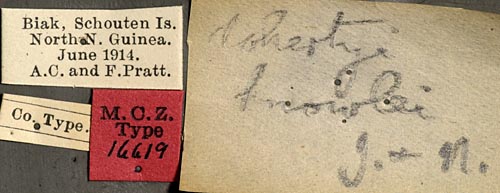 Biak, Schouten Is.
North N. Guinea.
June 1914.
A.C. and F. Pratt.
Co. Type.
M.C.Z.
Type
16619
dohertyi
knowlei
J. + N.